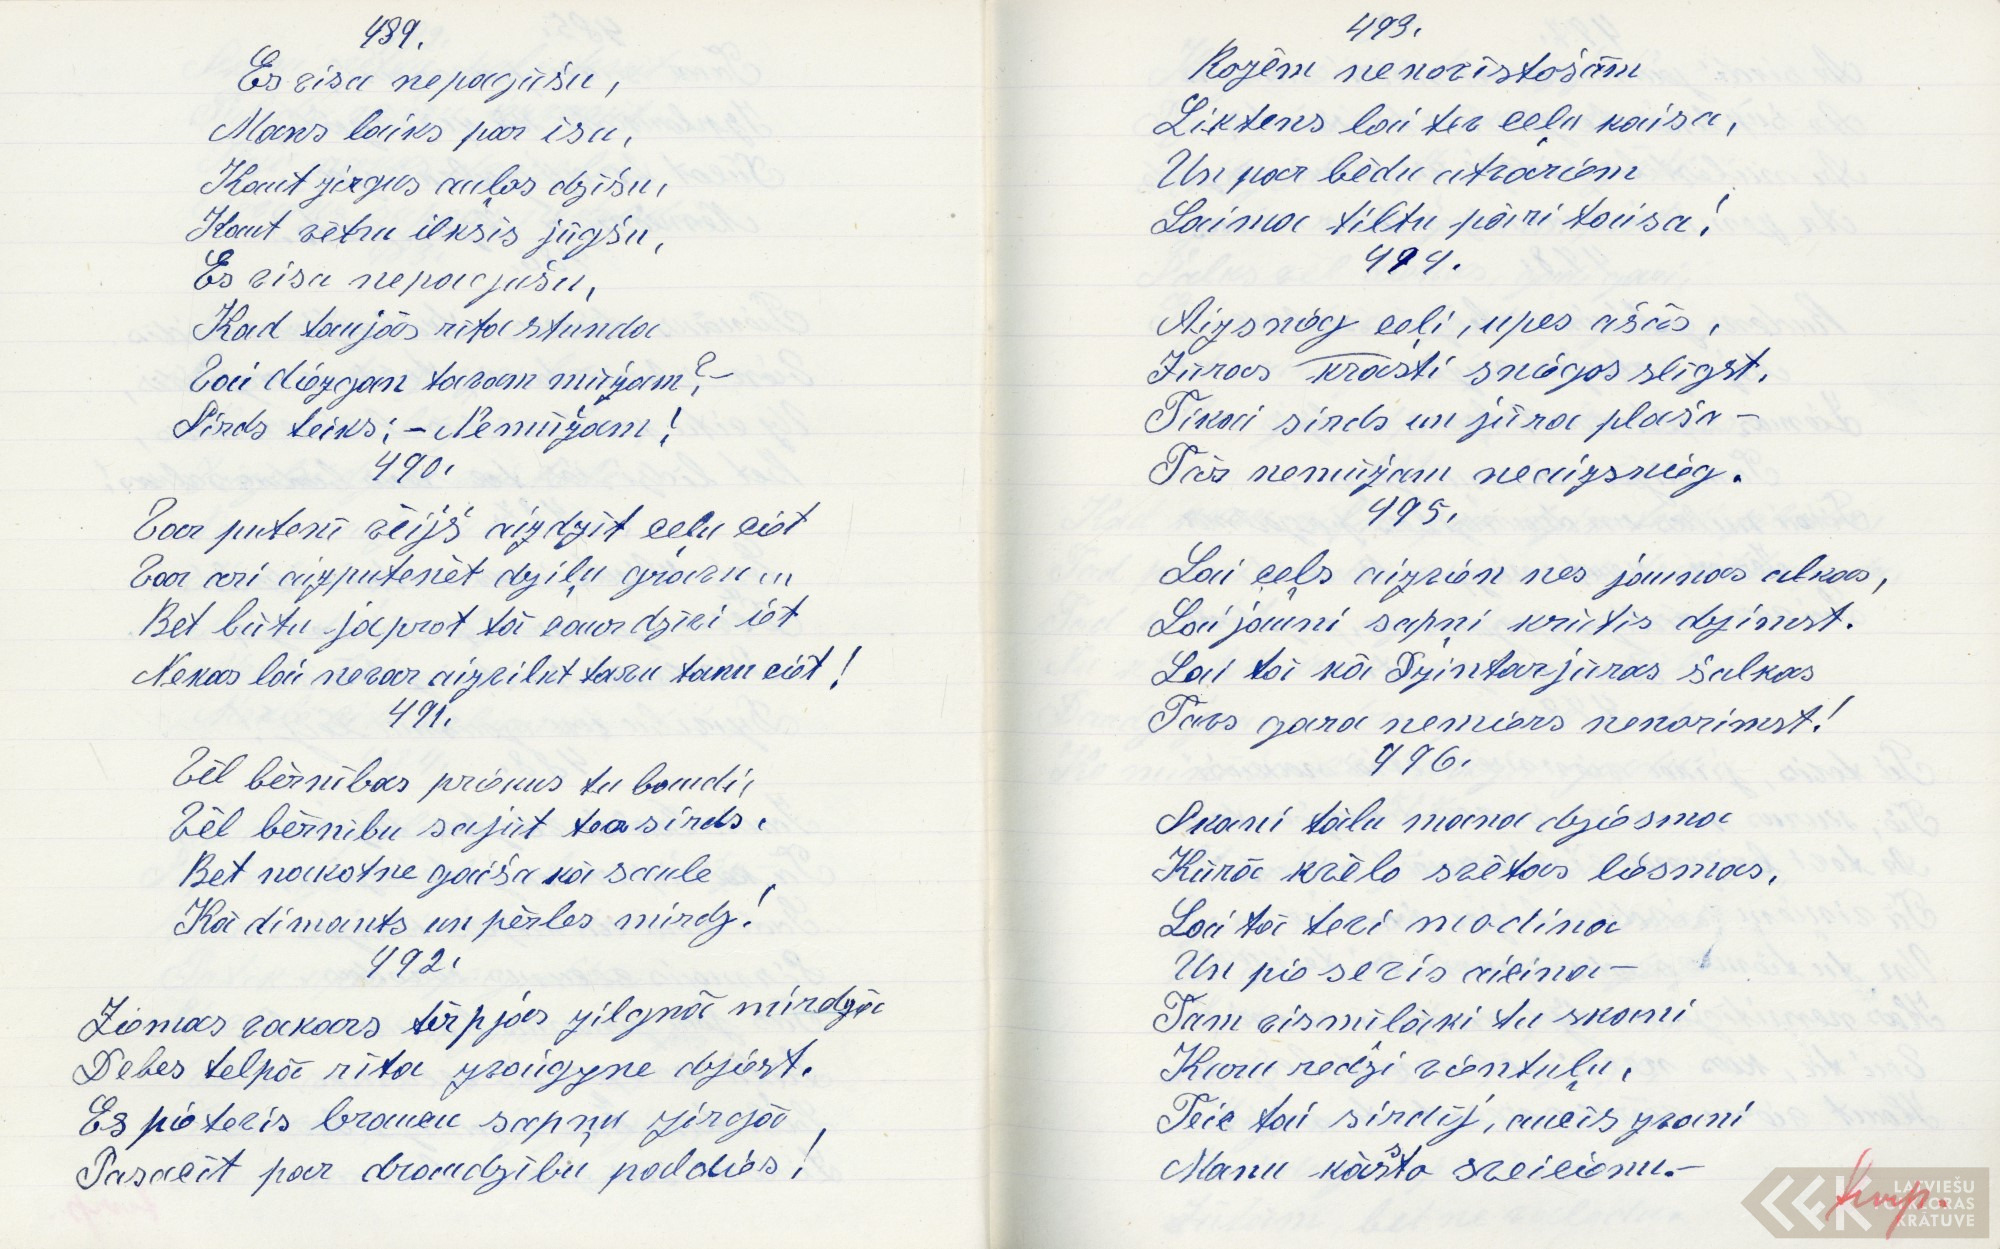 489.
Es visu nepagūšu,
Mans laiks par īsu,
Kaut zirgus auļos dzīšu,
Kaut vētru ilksīs jūgšu,
Es visu nepagūšu,
Kad taujās rīta stunda
Vai diezgan tavam mūžam? –
Sirds teiks: – Nemūžam!
490.
Var putenī vējš aizdzīt ceļu ciet
Var arī aizputenēt dziļu gravu...
Bet būtu jāprot tā caur dzīvi iet
Nekas lai nevar aizvilkt tavu taku ciet!
491.
Vēl bērnības priekus tu baudi,
Vēl bērnību sajūt tava sirds.
Bet nākotne gaiša kā saule
Kā dimants un pērles mirdz!
492.
Ziemas vakars tērpjas zilgnā mirdzā
Debes telpā rīta zvaigzne dziest.
Es pie tevis braucu sapņu zirgā
Pasacīt par draudzību paldies!
493.
Rozēm nenovīstošām
Liktens lai tev ceļu kaisa,
Un par bēdu atvariem
Laima tiltu pāri taisa!
494.
Aizsnieg ceļi, upes ašās,
Jūras krasti sniegos slīgst,
Tikai sirds un jūra plaša –
Tās nemūžam neaizsnieg.
495.
Lai ceļš aizvien nes jaunas alkas,
Lai jauni sapņi krūtīs dzimst.
Lai tā kā Dzintarjūras šalkas
Tavs gara nemiers nenorimst!
496.
Skani tālu mana dziesma
Kūrā kvēlo svētas liesmas,
Lai tā tevi modina
Un pie sevis aicina –
Tam vismīlāki tu skani
Kuru redzi vientuļu,
Teic tai sirdij, aucīs zvani
Manu kārsto sveicienu. –
LATVIEŠU
FOLKLORAS
KRĀTUVE